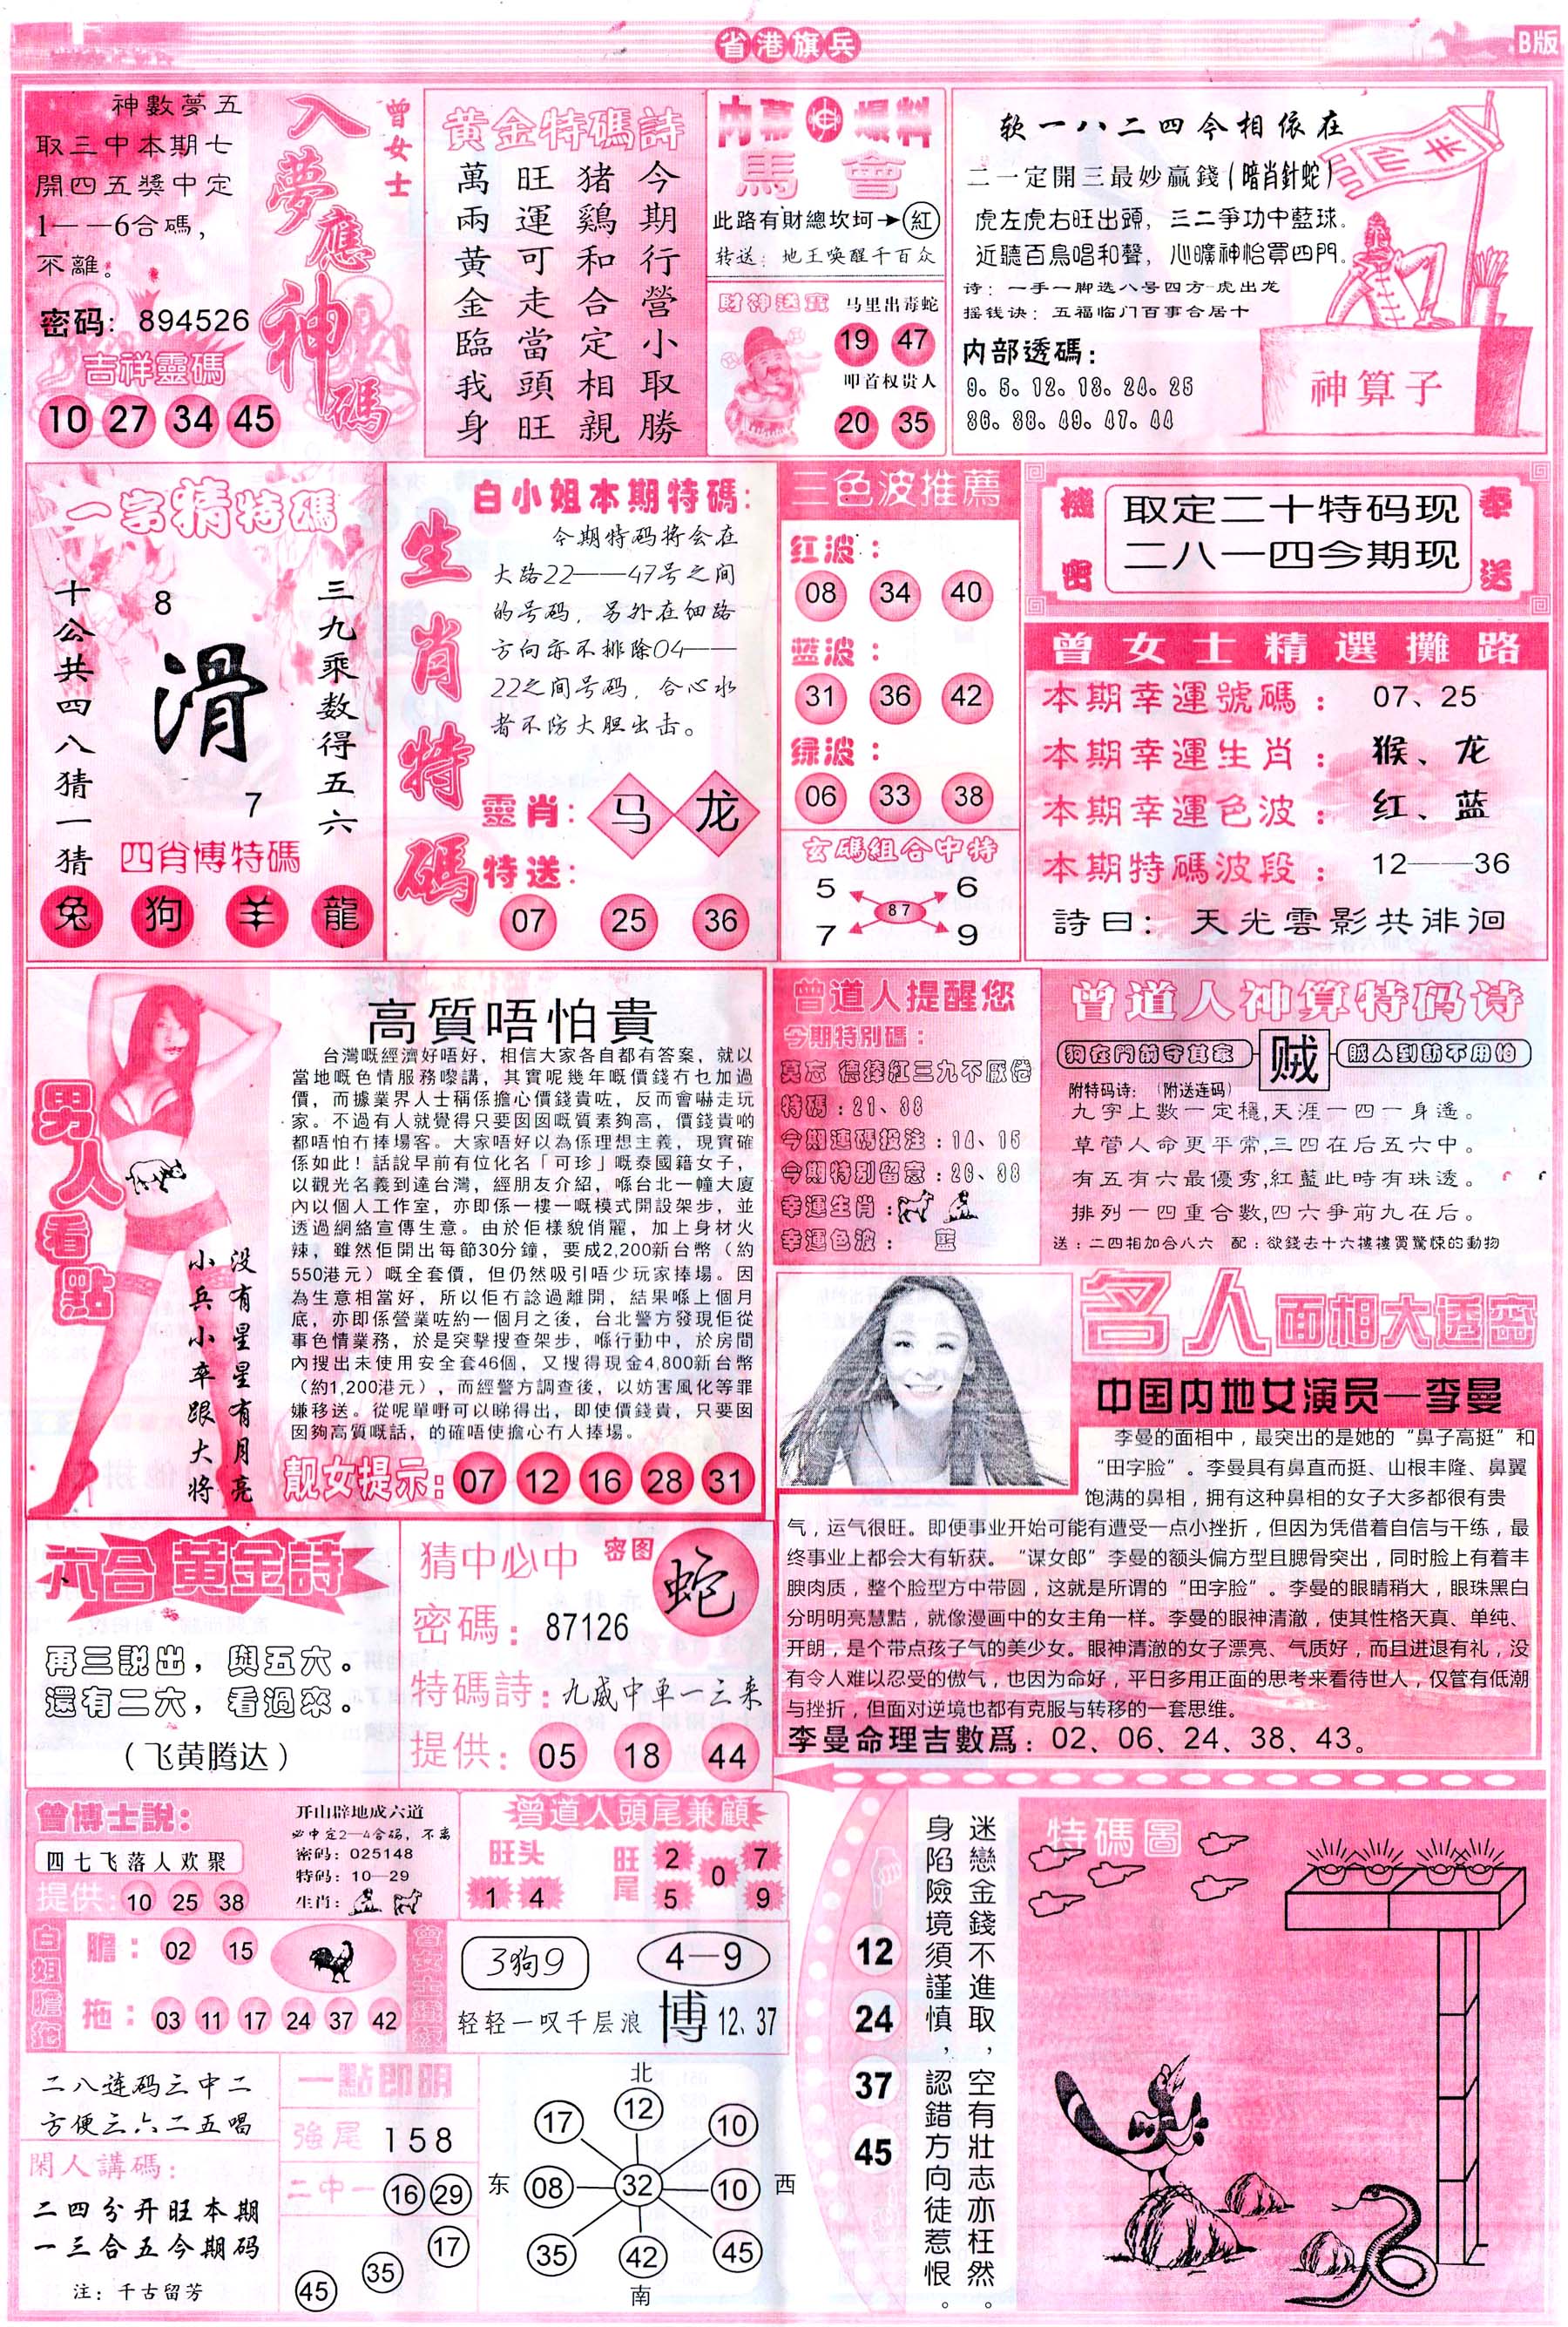 省港旗兵
B版
神數夢五
取三中本期七
開四五獎中定
1——6合碼，
不離。
密码：894526
吉祥靈碼
10 27 34 45
曾女士
入夢應神碼
黃金特碼詩
今期行營小取勝
猪鷄和合定相親
旺運可走當頭旺
萬兩黃金臨我身
内幕爆料
馬會
此路有財總坎坷→紅
转送：地王唤醒千百众
財神送寶
马里出毒蛇
19 47
叩首权贵人
20 35
软一八二四今相依在
二一定開三最妙贏錢(暗肖針蛇)
虎左虎右旺出頭，三二爭功中藍球。
近聽百鳥唱和聲，心曠神怡買四門。
诗：一手一脚选八号四方一虎出龙
摇钱诀：五福临门百事合居十
内部透碼：
9、5、12、13、24、25
36、38、49、47、44
半仙
神算子
一字猜特碼
三九乘数得五六
8
滑
7
十公共四八猜一猜
四肖博特碼
兔 狗 羊 龍
生肖特碼
白小姐本期特碼：
今期特码将会在
大路22——47号之间
的号码，另外在细路
方向亦不排除04——
22之间号码，合心水
者不防大胆出击。
靈肖：马 龙
特送：
07 25 36
三色波推薦
红波：
08 34 40
蓝波：
31 36 42
绿波：
06 33 38
玄碼組合中特
5 6
87
7 9
機密
奉送
取定二十特码现
二八一四今期现
曾女士精選攤路
本期幸運號碼：07、25
本期幸運生肖：猴、龙
本期幸運色波：红、蓝
本期特碼波段：12——36
詩曰：天光雲影共徘徊
男人看點
没有星星有月亮
小兵小卒跟大将
高質唔怕貴
台灣嘅經濟好唔好，相信大家各自都有答案，就以
當地嘅色情服務嚟講，其實呢幾年嘅價錢冇乜加過
價，而據業界人士稱係擔心價錢貴咗，反而會嚇走玩
家。不過有人就覺得只要囡囡嘅質素夠高，價錢貴啲
都唔怕冇捧場客。大家唔好以為係理想主義，現實確
係如此！話說早前有位化名「可珍」嘅泰國籍女子，
以觀光名義到達台灣，經朋友介紹，喺台北一幢大廈
內以個人工作室，亦即係一樓一嘅模式開設架步，並
透過網絡宣傳生意。由於佢樣貌俏麗，加上身材火
辣，雖然佢開出每節30分鐘，要成2,200新台幣（約
550港元）嘅全套價，但仍然吸引唔少玩家捧場。因
為生意相當好，所以佢冇諗過離開，結果喺上個月
底，亦即係營業咗約一個月之後，台北警方發現佢從
事色情業務，於是突擊搜查架步，喺行動中，於房間
內搜出未使用安全套46個，又搜得現金4,800新台幣
（約1,200港元），而經警方調查後，以妨害風化等罪
嫌移送。從呢單嘢可以睇得出，即使價錢貴，只要囡
囡夠高質嘅話，的確唔使擔心冇人捧場。
靓女提示：07 12 16 28 31
曾道人提醒您
今期特別碼：
莫忘 德捧紅三九不厭倦
特码：21、38
今期連碼投注：14、15
今期特别留意：26、38
幸運生肖：
幸運色波：藍
曾道人神算特码诗
狗在門前守其家
贼
賊人到訪不用怕
附特码诗：(附送连码)
九字上數一定穩，天涯一四一身遙。
草菅人命更平常，三四在后五六中。
有五有六最優秀，紅藍此時有珠透。
排列一四重合數，四六爭前九在后。
送：二四相加合八六 配：欲錢去十六樓樓買驚悚的動物
名人面相大透密
中国内地女演员—李曼
李曼的面相中，最突出的是她的“鼻子高挺”和
“田字脸”。李曼具有鼻直而挺、山根丰隆、鼻翼
饱满的鼻相，拥有这种鼻相的女子大多都很有贵
气，运气很旺。即便事业开始可能有遭受一点小挫折，但因为凭借着自信与干练，最
终事业上都会大有斩获。“谋女郎”李曼的额头偏方型且腮骨突出，同时脸上有着丰
腴肉质，整个脸型方中带圆，这就是所谓的“田字脸”。李曼的眼睛稍大，眼珠黑白
分明明亮慧黠，就像漫画中的女主角一样。李曼的眼神清澈，使其性格天真、单纯、
开朗，是个带点孩子气的美少女。眼神清澈的女子漂亮、气质好，而且进退有礼，没
有令人难以忍受的傲气，也因为命好，平日多用正面的思考来看待世人，仅管有低潮
与挫折，但面对逆境也都有克服与转移的一套思维。
李曼命理吉數爲：02、06、24、38、43。
六合黄金詩
再三説出，與五六。
還有二六，看過來。
（飞黄腾达）
猜中必中 密图 蛇
密碼：87126
特碼詩：九威中单一三来
提供：05 18 44
曾博士說：
四七飞落人欢聚
提供：10 25 38
开山辟地成六道
必中定2—4合码，不离
密码：025148
特码：10—29
生肖：
曾道人頭尾兼顧
旺头
1 4
旺尾
2 7
0
5 9
白姐膽拖
膽：02 15
拖：03 11 17 24 37 42
3狗9
4—9
轻轻一叹千层浪 博 12、37
二八连码三中二
方便三六二五唱
閑人講碼：
二四分开旺本期
一三合五今期码
注：千古留芳
一點即明
強尾 158
二中一 16 29
17
35
45
北
17 12 10
东 08 32 10 西
35 42 45
南
12
24
37
45
迷戀金錢不進取，空有壯志亦枉然。
身陷險境須謹慎，認錯方向徒惹恨。
特碼圖